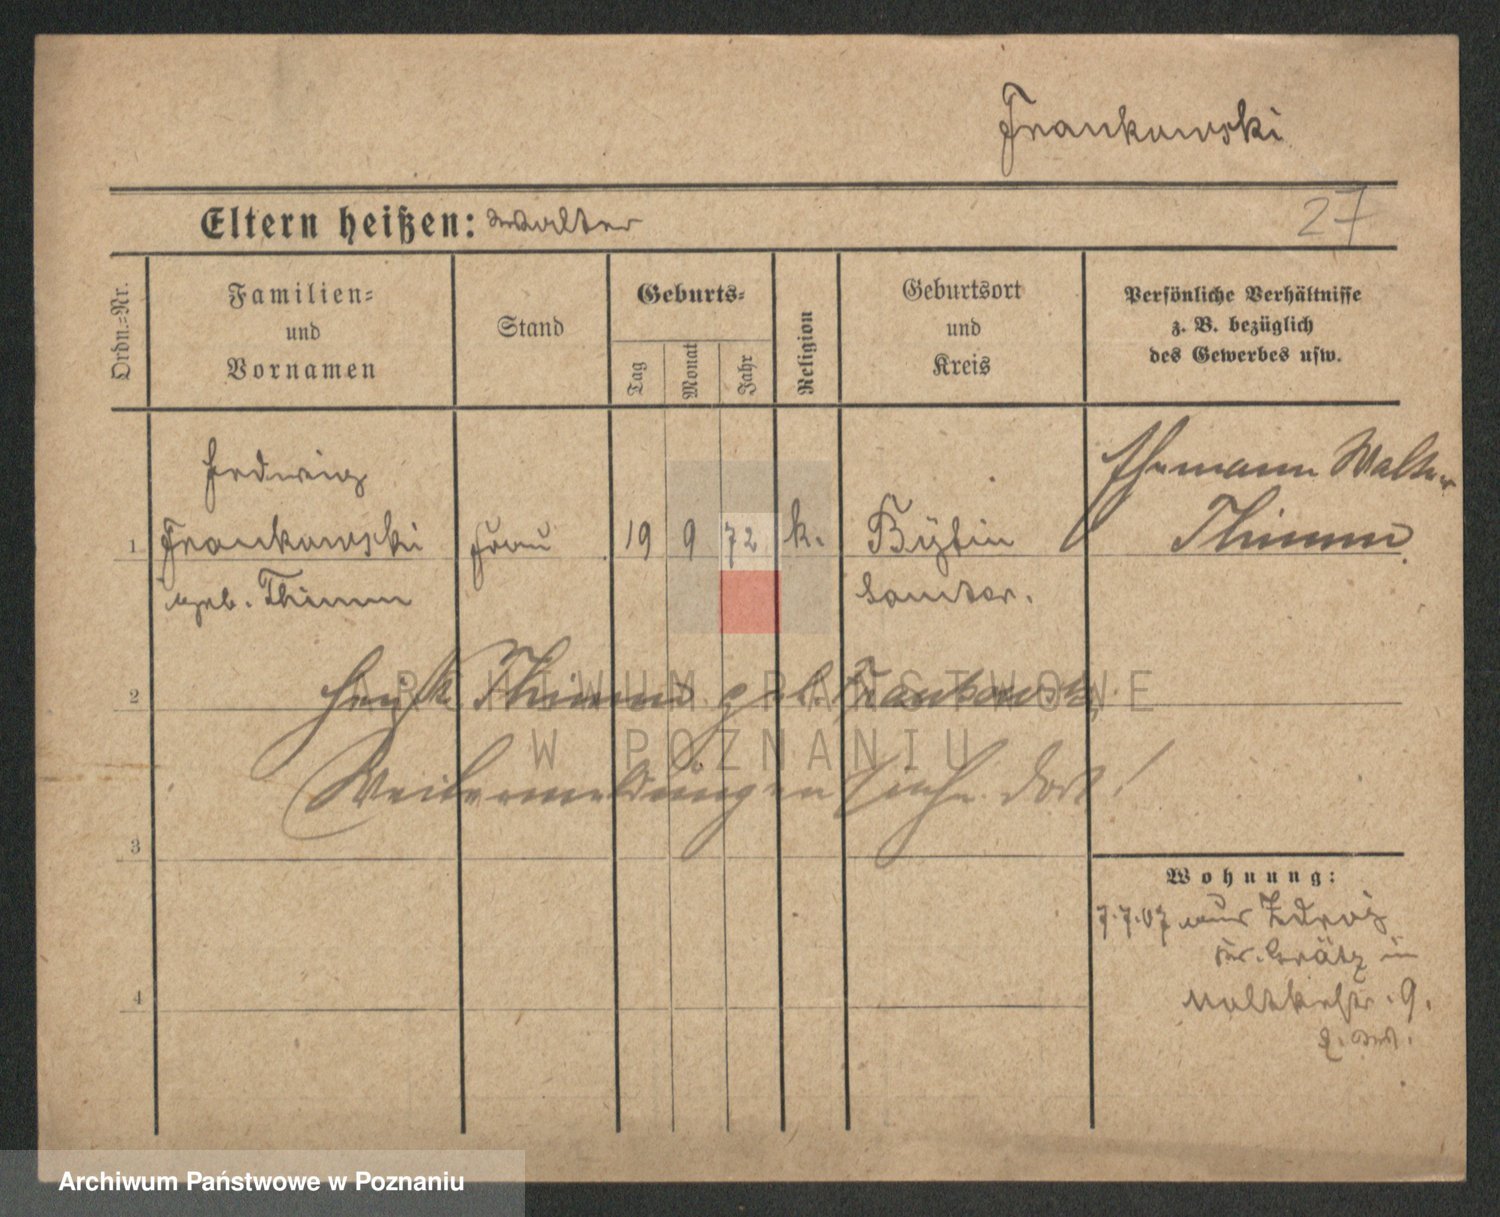 Frankowski
Eltern heißen: Walter
27
Ordn.-Nr.
Familien-
und
Vornamen
Stand
Geburts-
Tag
Monat
Jahr
Religion
Geburtsort
und
Kreis
Persönliche Verhältnisse
z. B. bezüglich
des Gewerbes usw.
Hedwig
Ehemann Walter
1 Frankowski Frau 19 9 72 k. Bytin Thimm
geb. Thimm Samter.
2 Thimm geb. Frankowski
ARCHIWUM PAŃSTWOWE
W POZNANIU
Weitermeldungen siehe dort!
3
Wohnung:
7.7.07 aus
Kr. Grätz in
4 Moltkestr. 9.
Archiwum Państwowe w Poznaniu